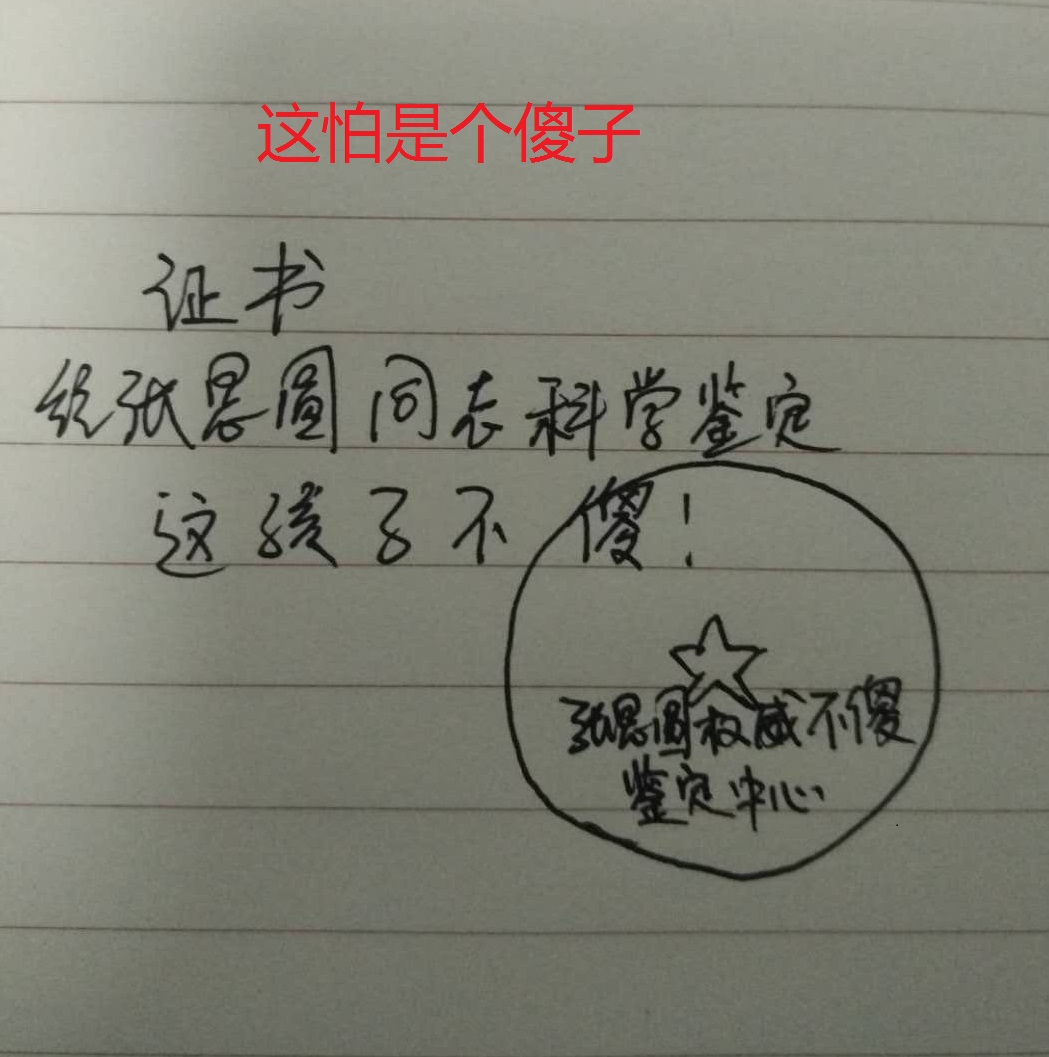 这怕是个傻子
证书
经张思圆同志科学鉴定
这孩子不傻！
张思圆权威不傻
鉴定中心